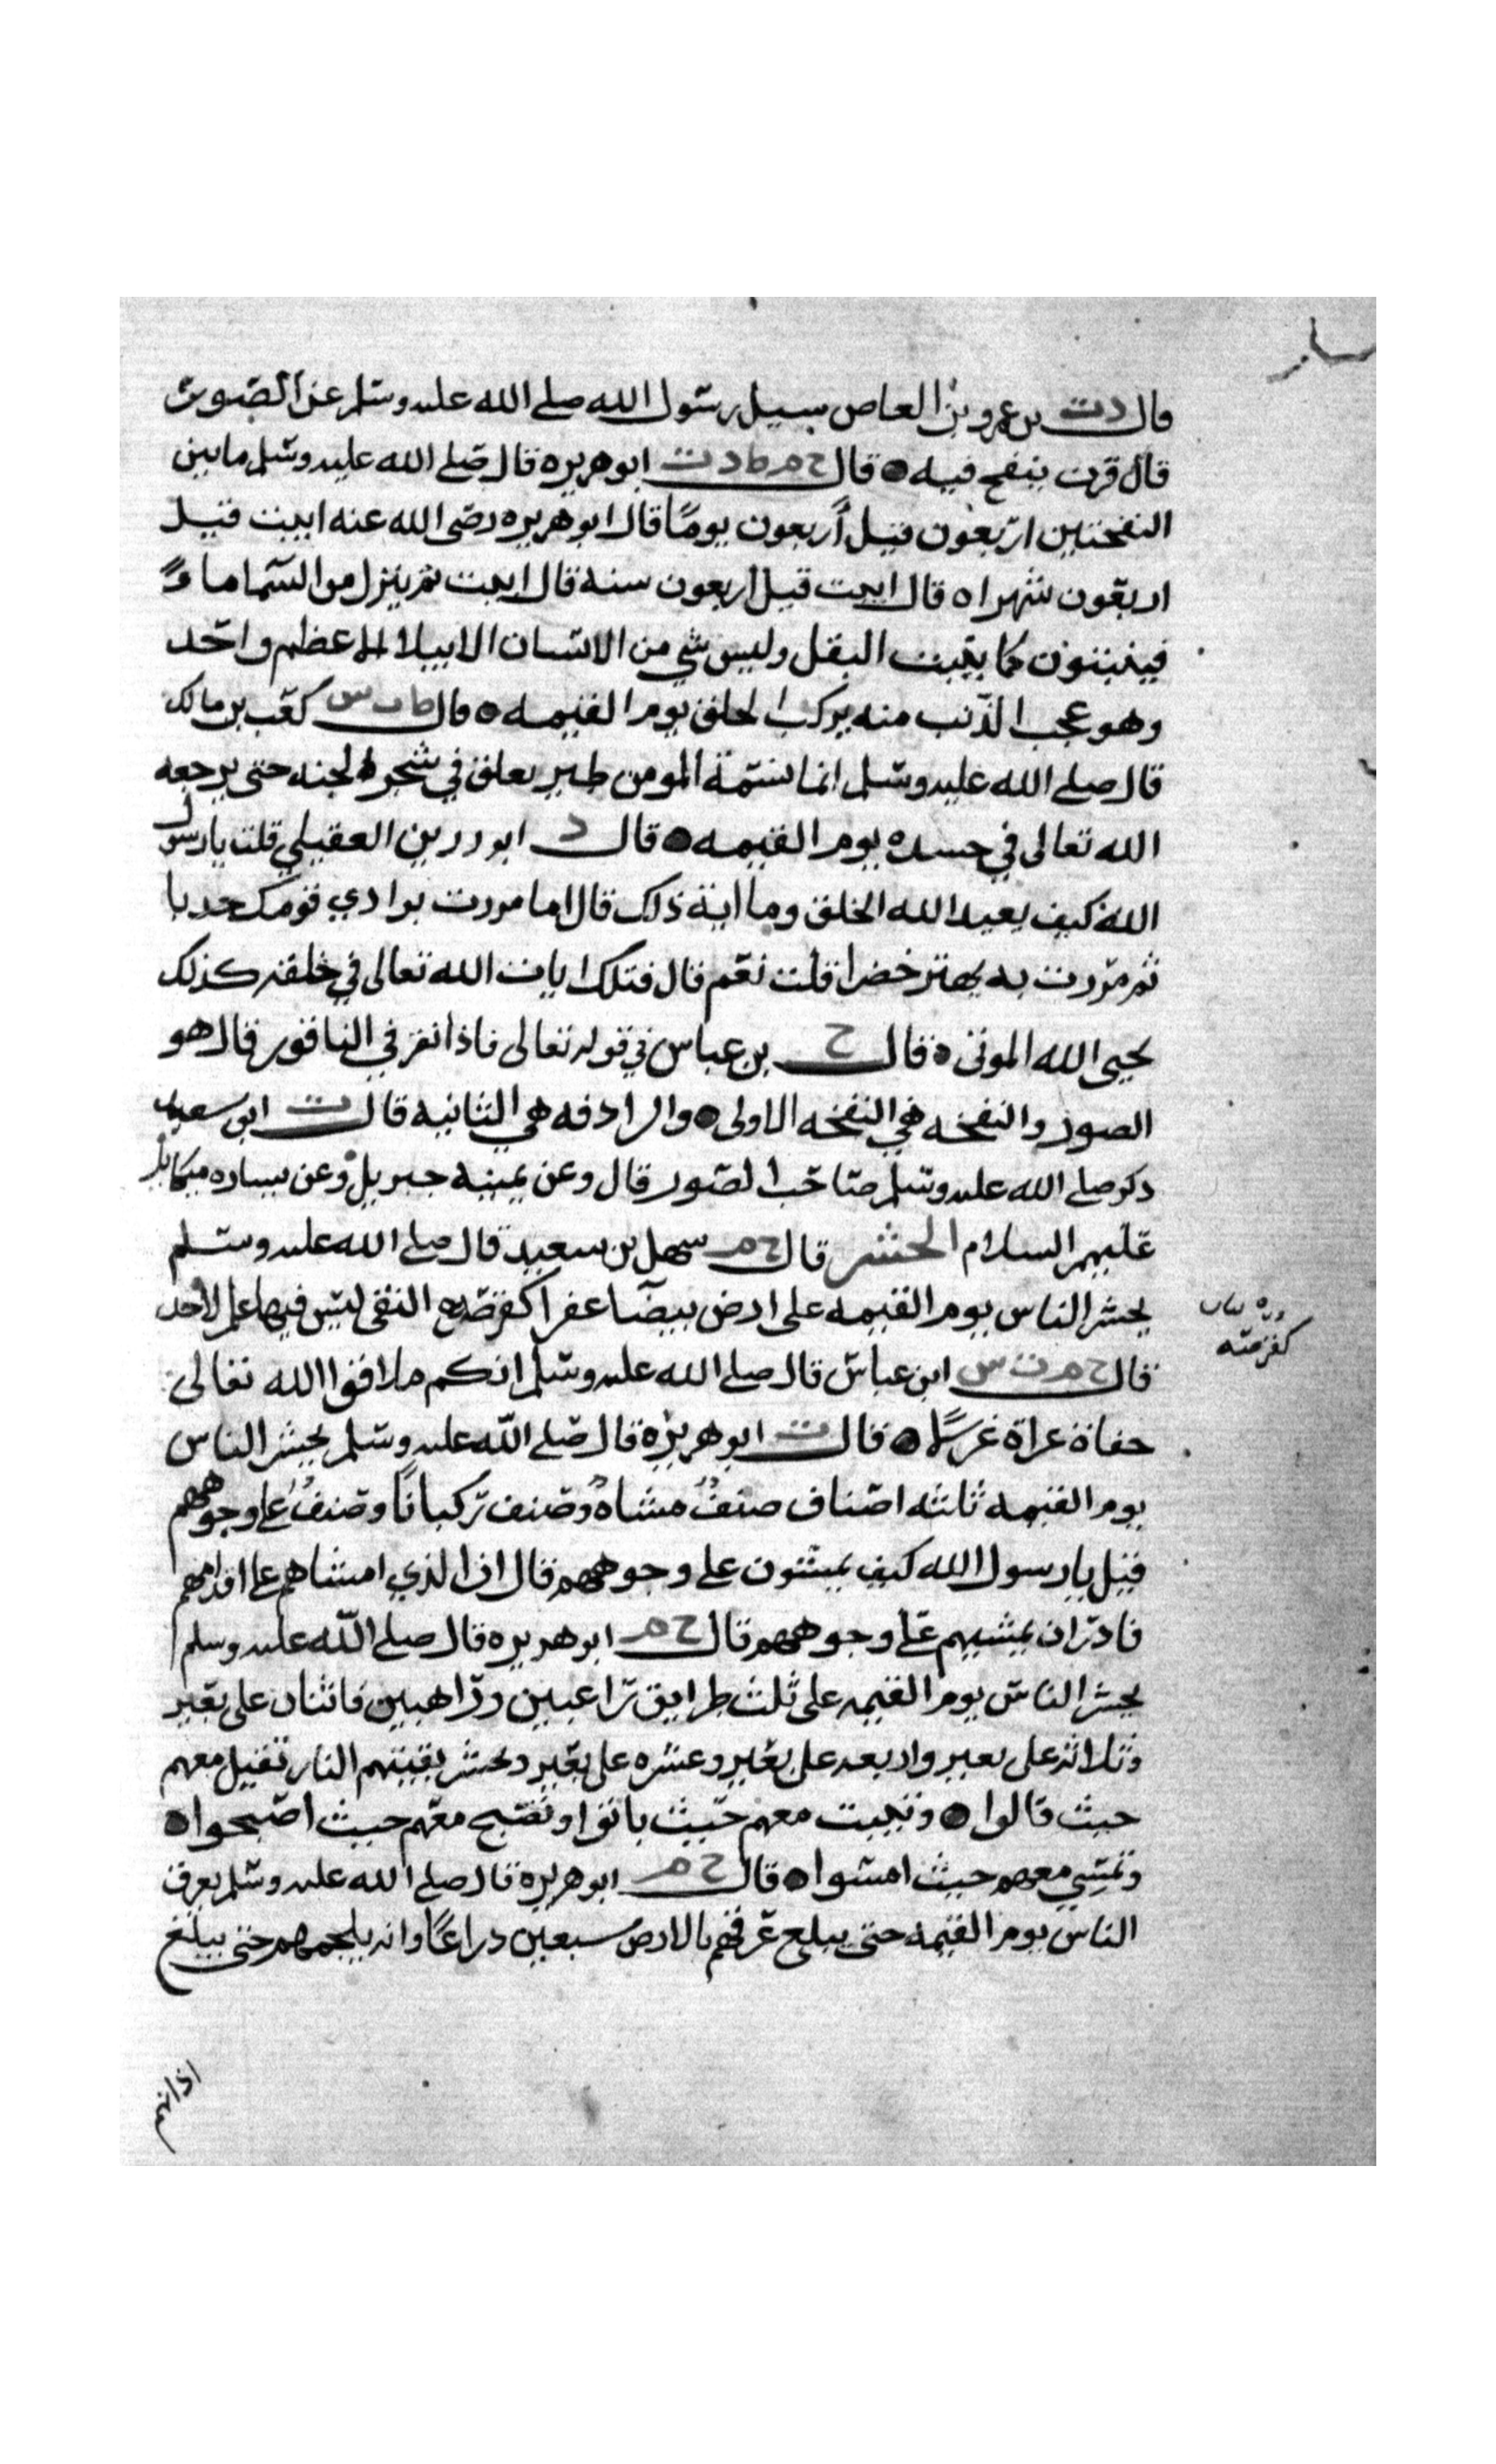 قال دت بن عمرو بن العاص سيل رسول الله صلى الله عليه وسلم عن الصور
قال قرن ينفخ فيه ● قال خ م ط د ت ابو هريره قال صلى الله عليه وسلم ما بين
النفختين اربعون قيل أربعون يومًا قال ابو هريره رضى الله عنه ابيت قيل
اربعون شهرا ٥ قال ابيت قيل اربعون سنه قال ابيت ثم ينزل من السما ماءً
فينبتون كما ينبت البقل وليس شي من الانسان الا يبلا الا عظم واحد
وهو عجب الذنب منه يركب الخلق يوم القيمه ٥ قال ط س كعب بن مالك
قال صلى الله عليه وسلم انما نسمة المومن طير يعلق في شجر الجنه حتى يرجعه
الله تعالى في جسده يوم القيمه ● قال د ابو رزين العقيلي قلت يا رسول
الله كيف يعيد الله الخلق وما اية ذلك قال اما مررت بوادي قومك جدبا
ثم مررت به يهتز خضرا قلت نعم قال فتلك ايات الله تعالى في خلقه كذلك
يحيى الله الموتى ٥ قال خ بن عباس في قوله تعالى فاذا نقر في الناقور قال هو
الصور والنفخه هي النفخه الاولى ● والرادفه هي الثانيه قال ت ابو سعيد
ذكر صلى الله عليه وسلم صاحب الصور قال وعن يمينه جبريل وعن يساره ميكائيل
عليهم السلام الحشر قال خ م سهل بن سعيد قال صلى الله عليه وسلم
يحشر الناس يوم القيمه على ارض بيضا عفرا كقرصة النقى ليس فيها علم لاحد
كقرصته
قال خ م ت س ابن عباس قال صلى الله عليه وسلم انكم ملاقوا الله تعالى
حفاة عراة غرلًا ● قال ت ابو هريره قال صلى الله عليه وسلم يحشر الناس
يوم القيمه ثلثه اصناف صنفٌ مشاهٌ وصنف ركبانًا وصنفٌ على وجوههم
قيل يا رسول الله كيف يمشون على وجوههم قال ان الذي امشاهم على اقدامهم
قادر ان يمشيهم على وجوههم قال خ م ابو هريره قال صلى الله عليه وسلم
يحشر الناس يوم القيمه على ثلث طرايق راغبين وراهبين فاثنان على بعير
وثلاثه على بعير واربعه على بعير وعشره على بعير وتحشر بقيتهم النار تقيل معهم
حيث قالوا ● وتبيت معهم حيث باتوا وتصبح معهم حيث اصبحوا ●
وتمسي معهم حيث امسوا ● قال خ م ابو هريره قال صلى الله عليه وسلم يعرق
الناس يوم القيمه حتى يبلغ عرقهم بالارض سبعين دراعًا وانه يلجمهم حتى يبلغ
اذانهم